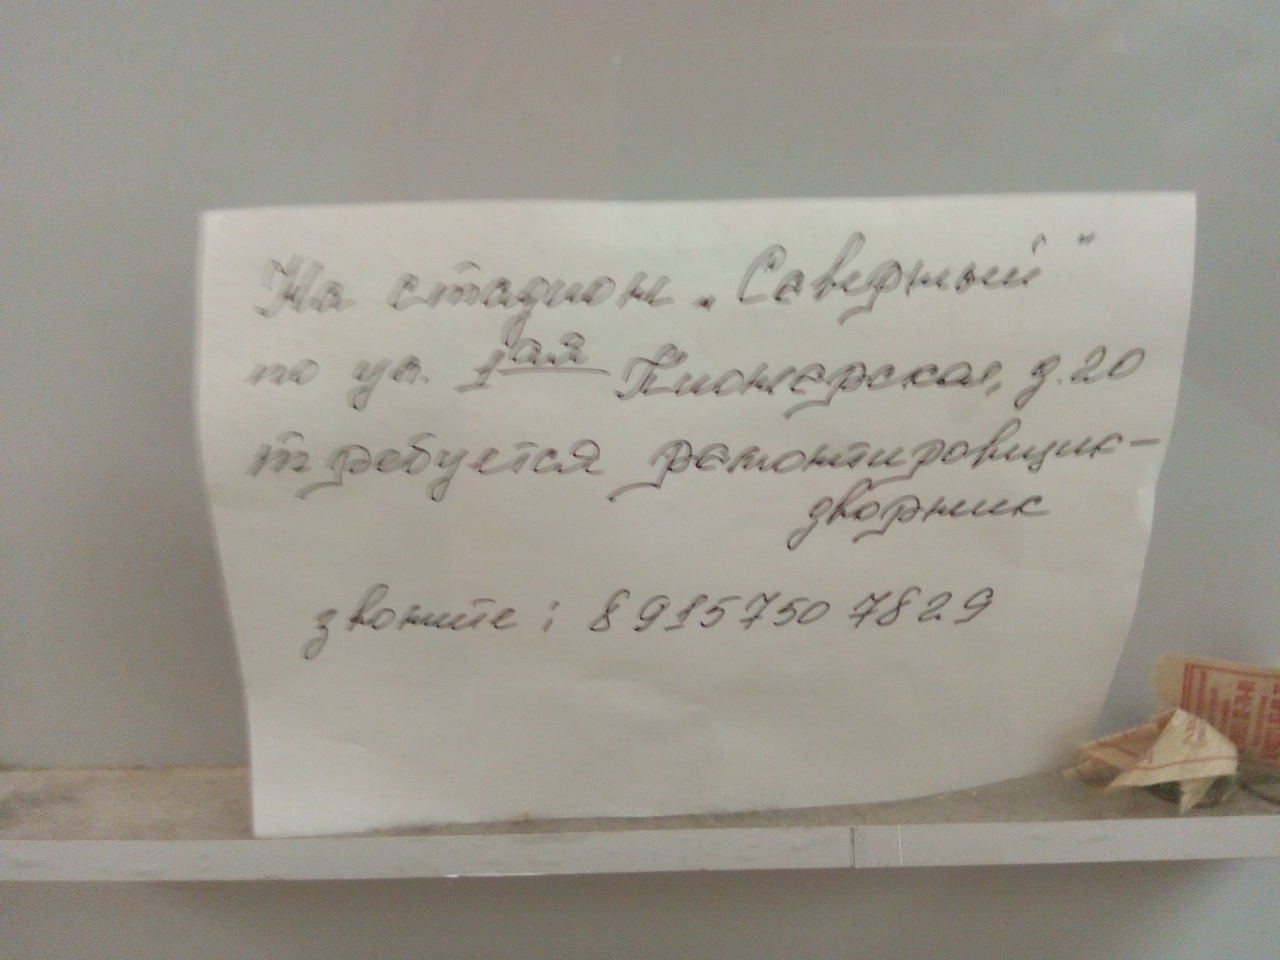 На стадион „Северный"
по ул. 1ая Пионерская, д. 20
требуется ремонтировщик-
дворник
звоните: 8 915 750 7829